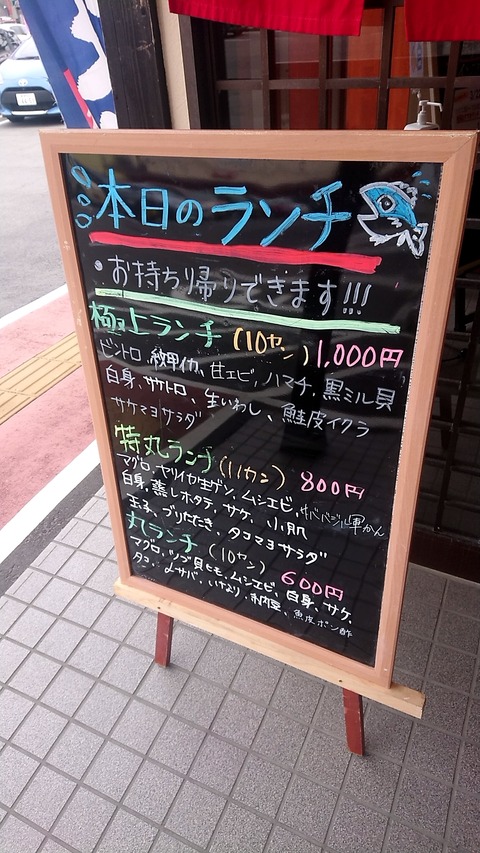 本日のランチ
・お持ち帰りできます!!!
極上ランチ(10カン)1,000円
ビントロ、紋甲イカ、甘エビ、ハマチ、黒ミル貝
白身、サトロ、生いわし、鮭皮イクラ
サケマヨサラダ
特丸ランチ(11カン) 800円
マグロ、ヤリイカ生ゲソ、ムシエビ、
白身、蒸しホタテ、サケ、小肌
玉子、ブリたたき、タコマヨサラダ
丸ランチ(10カン) 600円
マグロ、ツブ貝ヒモ、ムシエビ、白身、サケ、
タコ、〆サバ、いなり、納豆、魚皮ポン酢